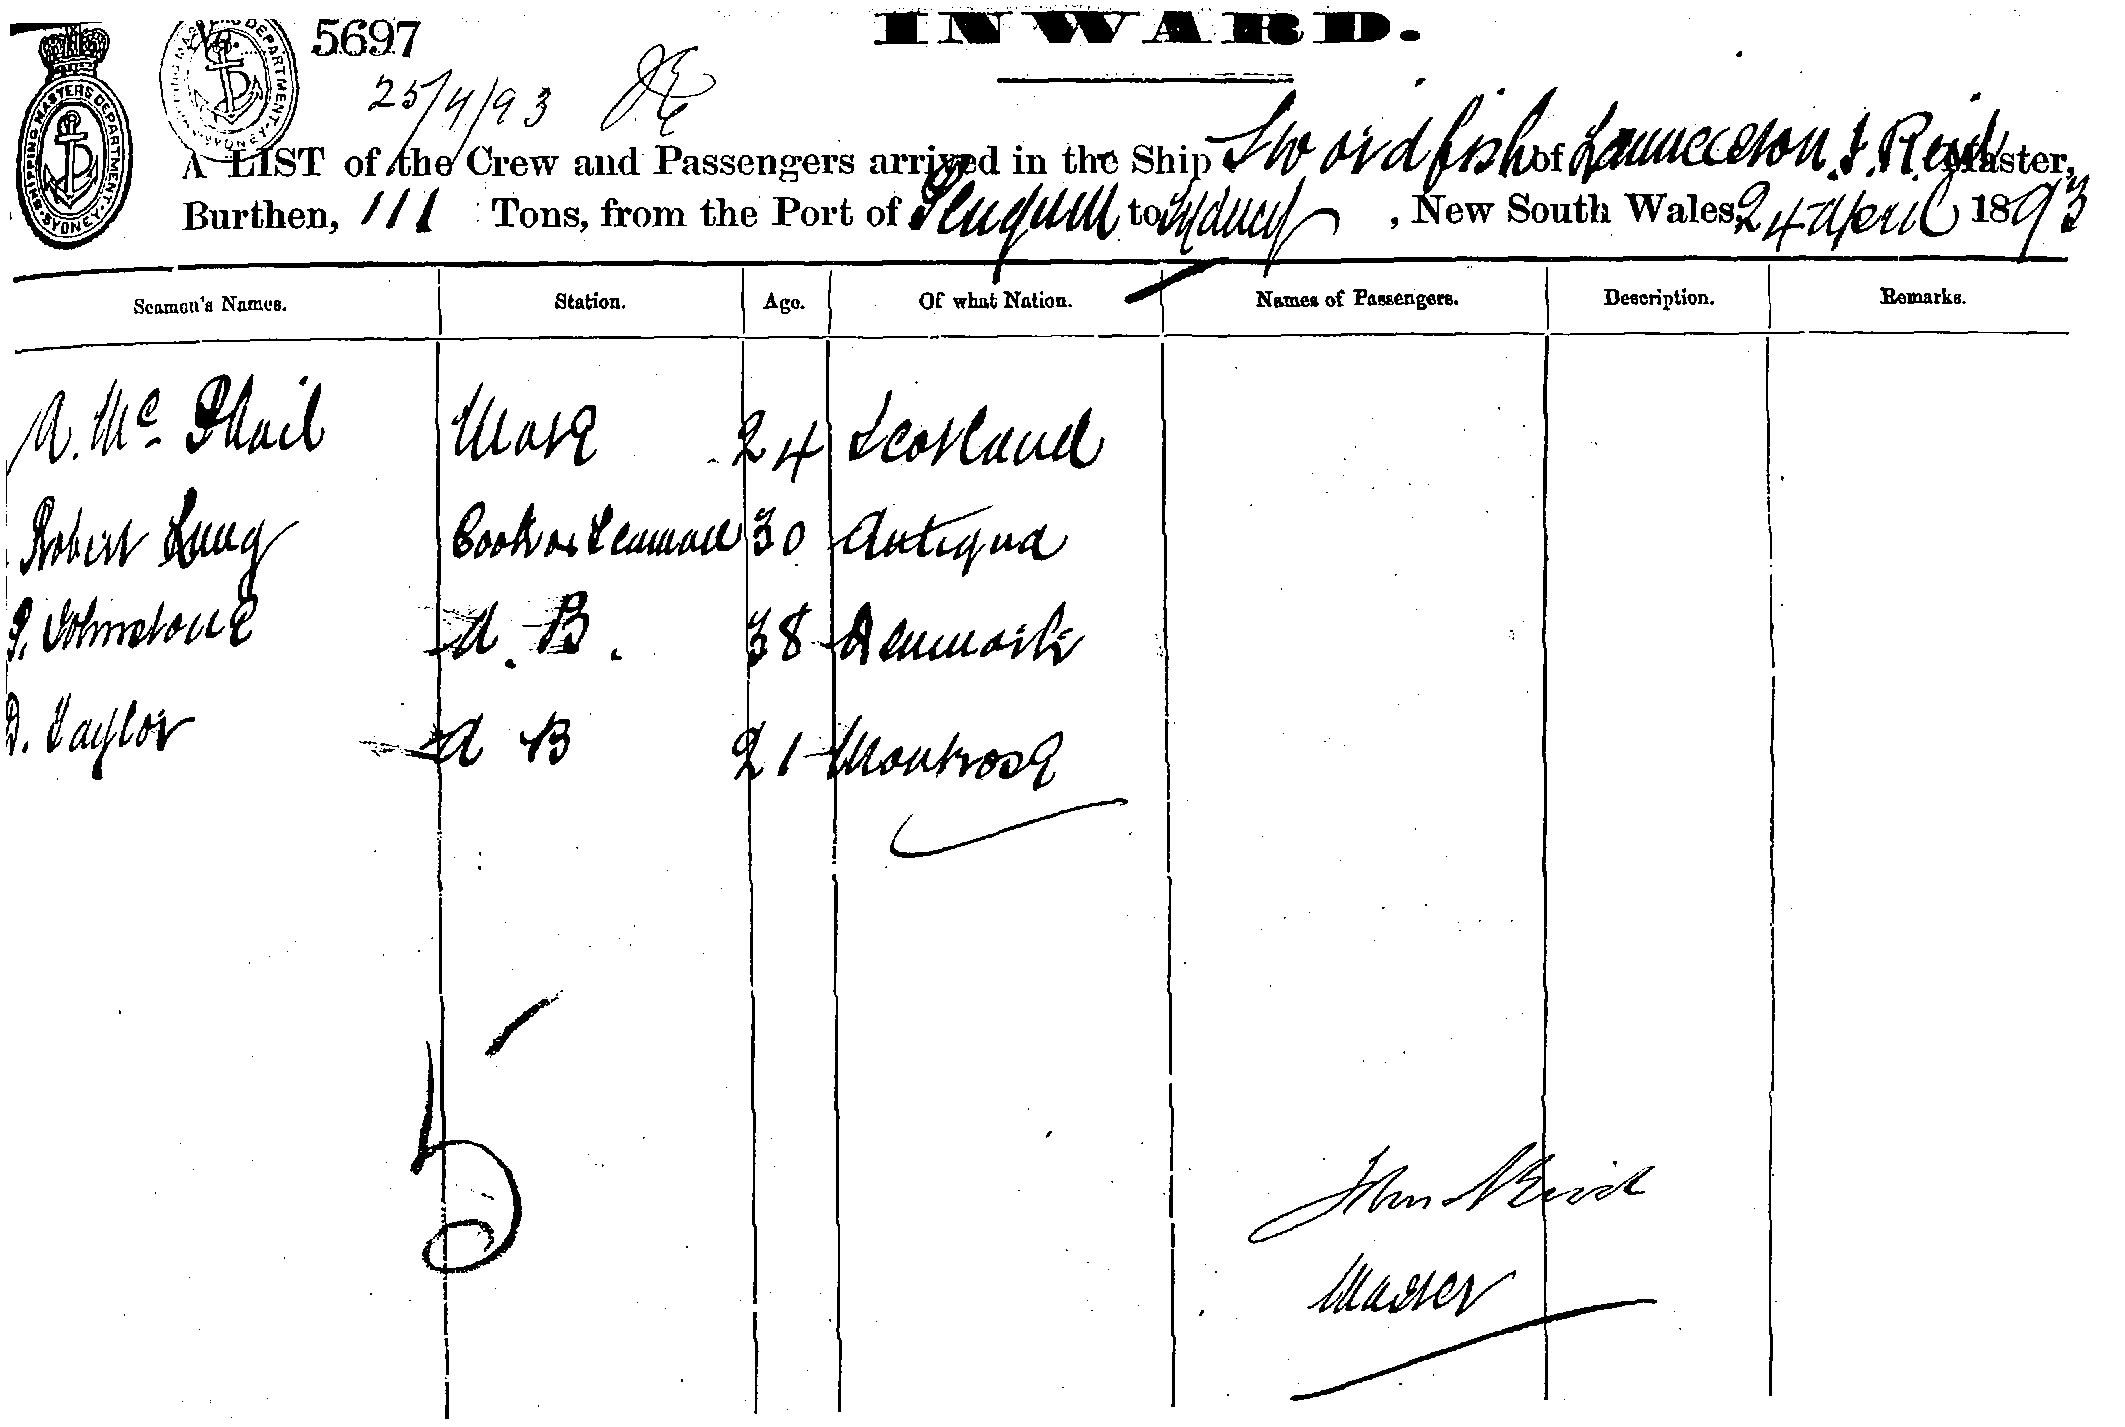 INWARD.
No. 5697
25/4/93
A LIST of the Crew and Passengers arrived in the Ship Swordfish of Launceston J. Reid Master,
Burthen, 111 Tons, from the Port of Penguin to Sydney, New South Wales, 24 April 1893
Seamen's Names. Station. Age. Of what Nation. Names of Passengers. Description. Remarks.
A. Mc Phail Mate 24 Scotland
Robert Lung Cook as Seaman 30 Antigua
P. Johnstone A. B. 38 Denmark
D. Taylor A B 21 Montrose
5
John Reid
Master
SHIPPING MASTERS DEPARTMENT
SYDNEY